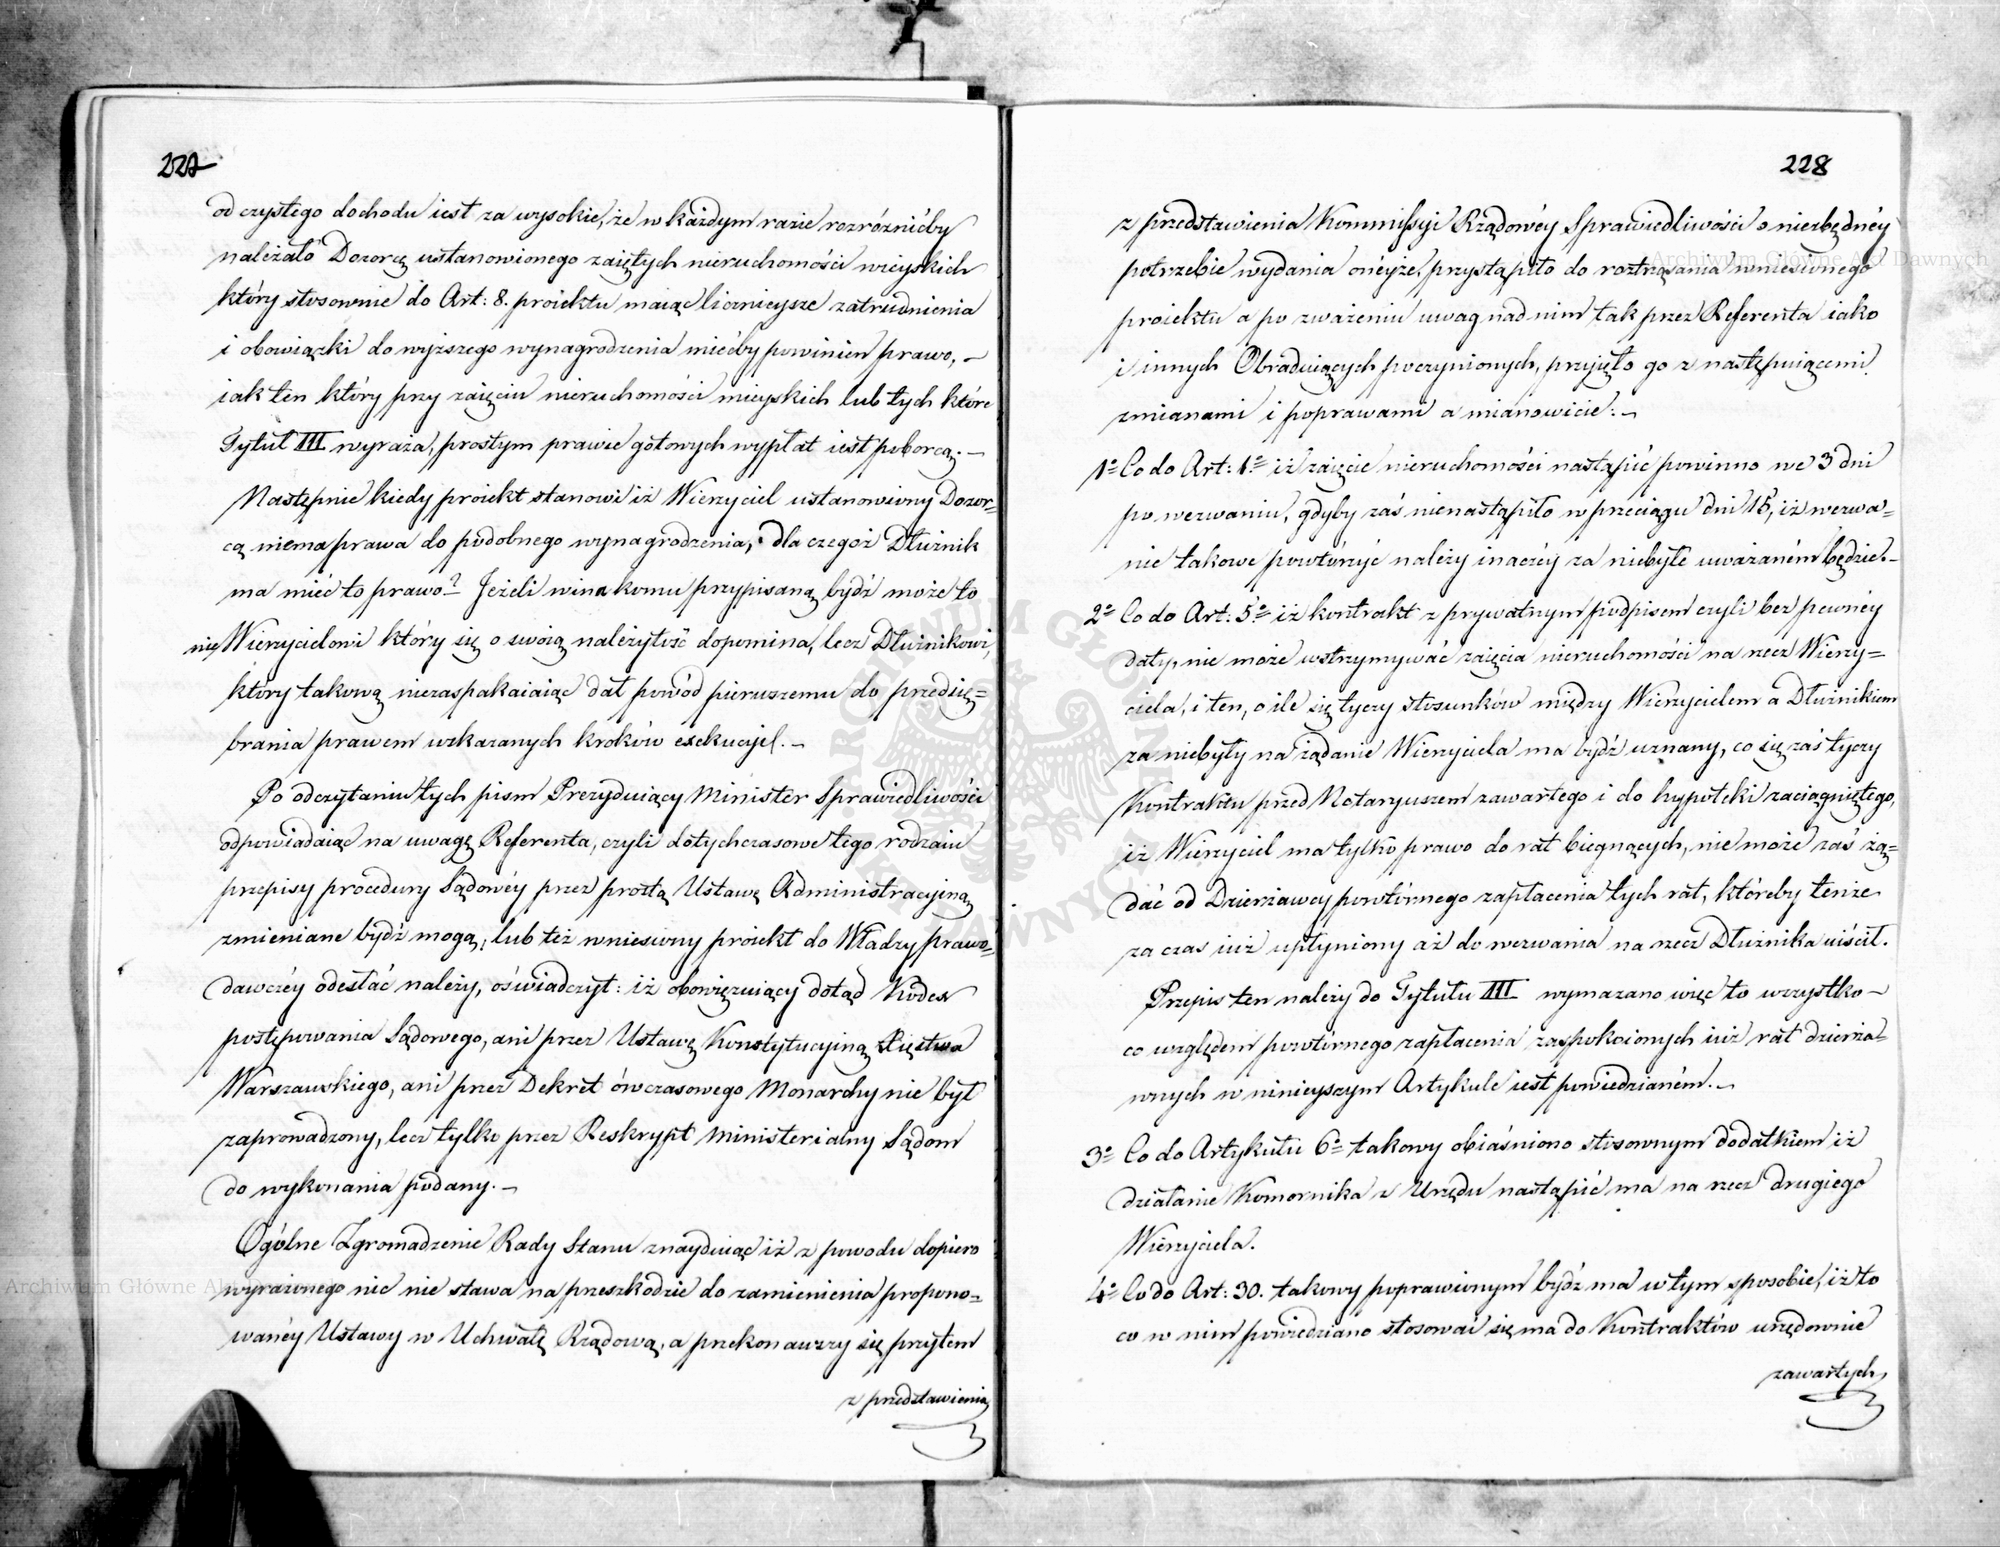 227
od czystego dochodu iest za wysokie, że w każdym razie rozróżnićby
należało Dozorcę ustanowionego zaiętych nieruchomości wieyskich
który stosownie do Art: 8. proiektu maiąc licznieysze zatrudnienia
i obowiązki do wyższego wynagrodzenia miećby powinien prawo, –
iak ten który przy zaięciu nieruchomości mieyskich lub tych które
Tytuł III wyraża, prostym prawie gotowych wypłat iest poborcą. –
Następnie kiedy proiekt stanowi iż Wierzyciel ustanowiony Dozor=
cą niema prawa do podobnego wynagrodzenia, dla czegoż Dłużnik
ma mieć to prawo? Jeżeli wina komu przypisaną bydź może to
nie Wierzycielowi który się o swoią należytość dopomina, lecz Dłużnikowi,
który takową niezaspakaiaiąc dał powód pierwszemu do przedsię=
brania prawem wskazanych kroków exekucyi. –
Po odczytaniu tych pism Prezyduiący Minister Sprawiedliwości
odpowiadaiąc na uwagę Referenta, czyli dotychczasowe tego rodzaiu
przepisy procedury Sądowéy przez prostą Ustawę Administracyiną
zmieniane bydź mogą, lub też wniesiony proiekt do Władzy prawo=
dawczéy odesłać należy, oświadczył: iż obowięzuiący dotąd Kodex
postępowania Sądowego, ani przez Ustawę Konstytucyiną Xięstwa
Warszawskiego, ani przez Dekret ówczasowego Monarchy nie był
zaprowadzony, lecz tylko przez Reskrypt Ministerialny Sądom
do wykonania podany. –
Ogólne Zgromadzenie Rady Stanu znayduiąc iż z powodu dopiero
wyrażonego nic nie stawa na przeszkodzie do zamienienia propono=
wanéy Ustawy w Uchwałę Rządową, a przekonawszy się przytem
z przedstawienia
228
z przedstawienia Kommissyi Rządowéy Sprawiedliwości o niezbędnéy
potrzebie wydania onéyże, przystąpiło do roztrząsania wniesionego
proiektu a po zważeniu uwag nad nim tak przez Referenta iako
i innych Obraduiących poczynionych, przyięło go z następuiącemi
zmianami i poprawami a mianowicie: –
1o Co do Art: 1o iż zaięcie nieruchomości nastąpić powinno we 3 dni
po wezwaniu, gdyby zaś nienastąpiło w przeciągu dni 15, iż wezwa=
nie takowe powtórzyć należy inaczéy za niebyłe uważaném będzie. –
2o Co do Art: 5o iż kontrakt z prywatnym podpisem czyli bez pewnéy
daty, nie może wstrzymywać zaięcia nieruchomości na rzecz Wierzy=
ciela, i ten, o ile się tyczy stosunków między Wierzycielem a Dłużnikiem
za niebyły na żądanie Wierzyciela ma bydź uznany, co się zaś tyczy
Kontraktu przed Notaryuszem zawartego i do hypoteki zaciągniętego,
iż Wierzyciel ma tylko prawo do rat biegnących, nie może zaś żą=
dać od Dzierżawcy powtórnego zapłacenia tych rat, któreby tenże
za czas iuż upłyniony aż do wezwania na rzecz Dłużnika uiścił.
Przepis ten należy do Tytułu III wymazano więc to wszystko –
co względem powtórnego zapłacenia zaspokoionych iuż rat dzierża=
wnych w ninieyszym Artykule iest powiedzianém. –
3o Co do Artykułu 6o takowy obiaśniono stosownym dodatkiem iż
działanie Komornika z Urzędu nastąpić ma na rzecz drugiego
Wierzyciela.
4o Co do Art: 30. takowy poprawionym bydź ma w tym sposobie, iż to
co w nim powiedziano stosować się ma do Kontraktów urzędownie
zawartych
Archiwum Główne Akt Dawnych
Archiwum Główne Akt Dawnych
ARCHIWUM GŁÓWNE AKT DAWNYCH